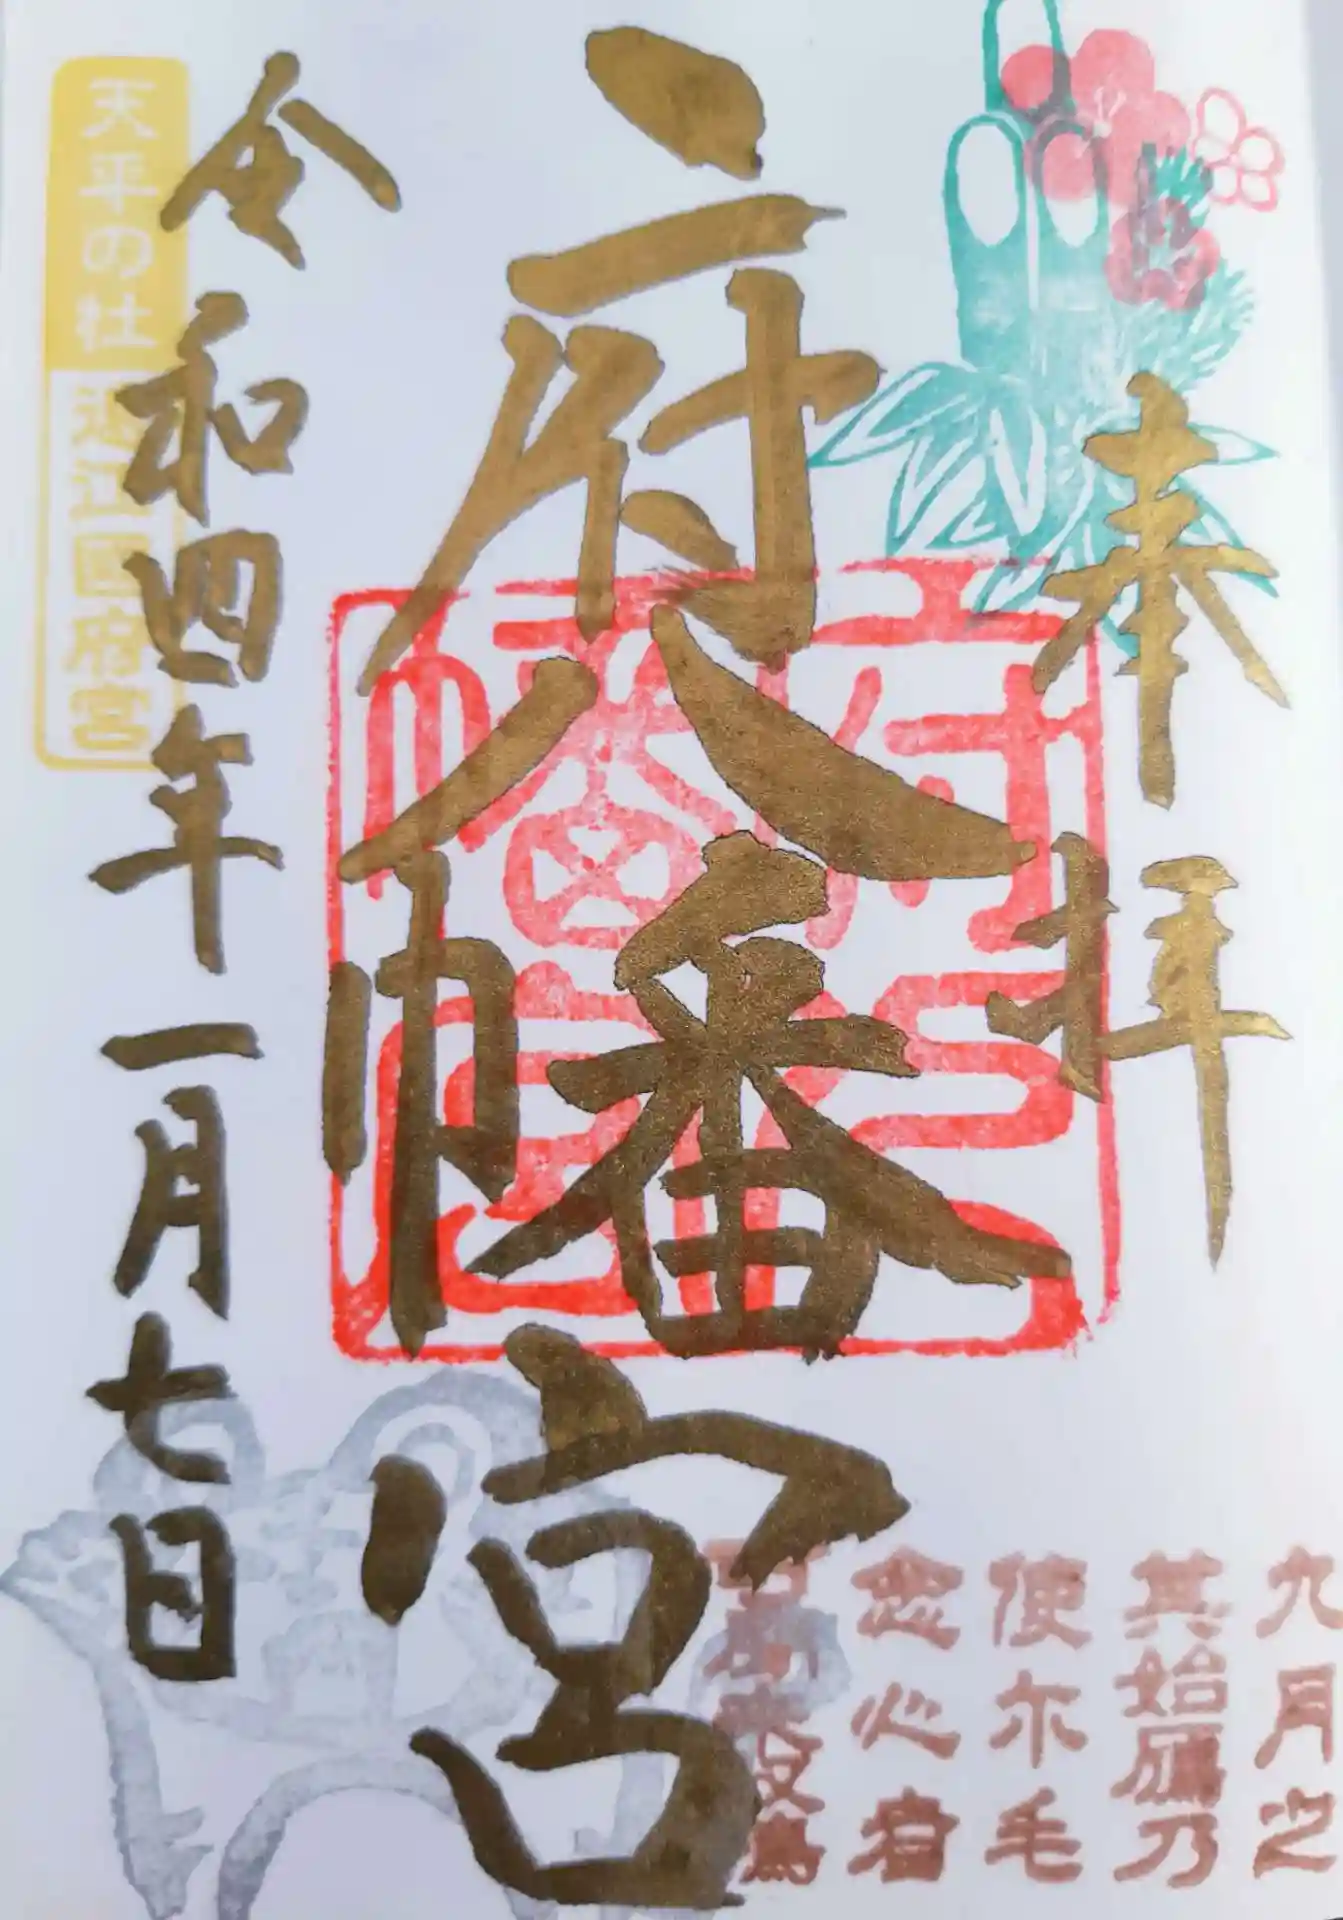 奉拝
府八幡宮
令和四年一月七日
天平の杜
遠江国府宮
府八幡宮
九月之
其始鴈乃
使尓毛
念心者